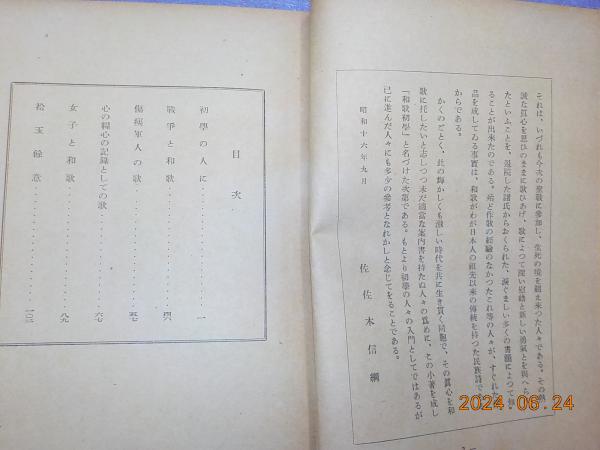 それは、いづれも今次の聖戰に參加し、生死の境を超え來つた人々である。その
誠な眞心を思ひのままに歌ひあげ、歌によつて深い慰藉と新しい勇氣とを與へら
たといふことを、退院した諸氏からおくられた、涙ぐましい多くの書翰によつて知
ることが出來たのである。殆ど作歌の經驗のなかつたこれ等の人々が、すぐれた
品を成してゐる事實は、和歌がわが日本人の祖先以來の傳統を持つた民族詩で
からである。
かくのごとく、此の輝かしくも激しい時代を共に生き貫く同胞で、その眞心を和
歌に托したいと志しつつ未だ適當な案內書を持たぬ人々の爲めに、この小著を成し
「和歌初學」と名づけた次第である。もとより初學の人々の入門としてではあるが
已に進んだ人々にも多少の參考となれかしと念じてをることである。
昭和十六年九月
佐佐木信綱
目次
初學の人に………一
戰爭と和歌………四六
傷痍軍人の歌………五七
心の糧心の記錄としての歌………六七
女子と和歌………八九
松玉餘意………一〇三
2024 06 24